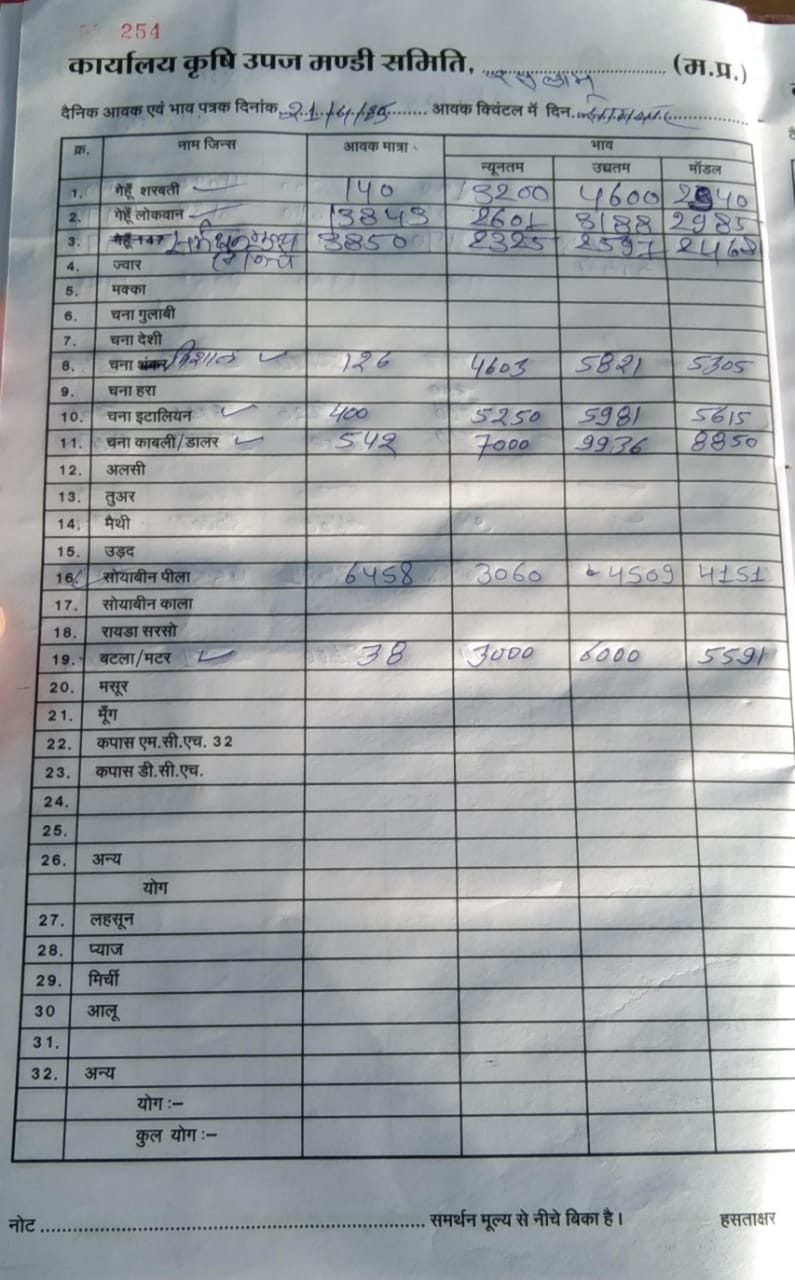 254
कार्यालय कृषि उपज मण्डी समिति, रतलाम (म.प्र.)
दैनिक आवक एवं भाव पत्रक दिनांक 21/4/25 आवक क्विंटल में दिन. सोमवार
क्र. नाम जिन्स आवक मात्रा भाव
न्यूनतम उद्यतम मॉडल
1. गेहूँ शरबती 140 3200 4600
2. गेहूँ लोकवान 13843 2601 3188 2985
3. गेहूँ 147 3850 2325 2597
4. ज्वार
5. मक्का
6. चना गुलाबी
7. चना देशी
8. चना विशाल 126 4603 5821 5305
9. चना हरा
10. चना इटालियन 400 5250 5981 5615
11. चना काबली/डालर 542 7000 9936 8850
12. अलसी
13. तुअर
14. मैथी
15. उड़द
16. सोयाबीन पीला 6458 3060 4509 4151
17. सोयाबीन काला
18. रायडा सरसो
19. बटला/मटर 38 3000 6000 5591
20. मसूर
21. मूँग
22. कपास एम.सी.एच. 32
23. कपास डी.सी.एच.
24.
25.
26. अन्य
योग
27. लहसून
28. प्याज
29. मिर्ची
30 आलू
31.
32. अन्य
योग :–
कुल योग :–
नोट ........ समर्थन मूल्य से नीचे बिका है। हसताक्षर